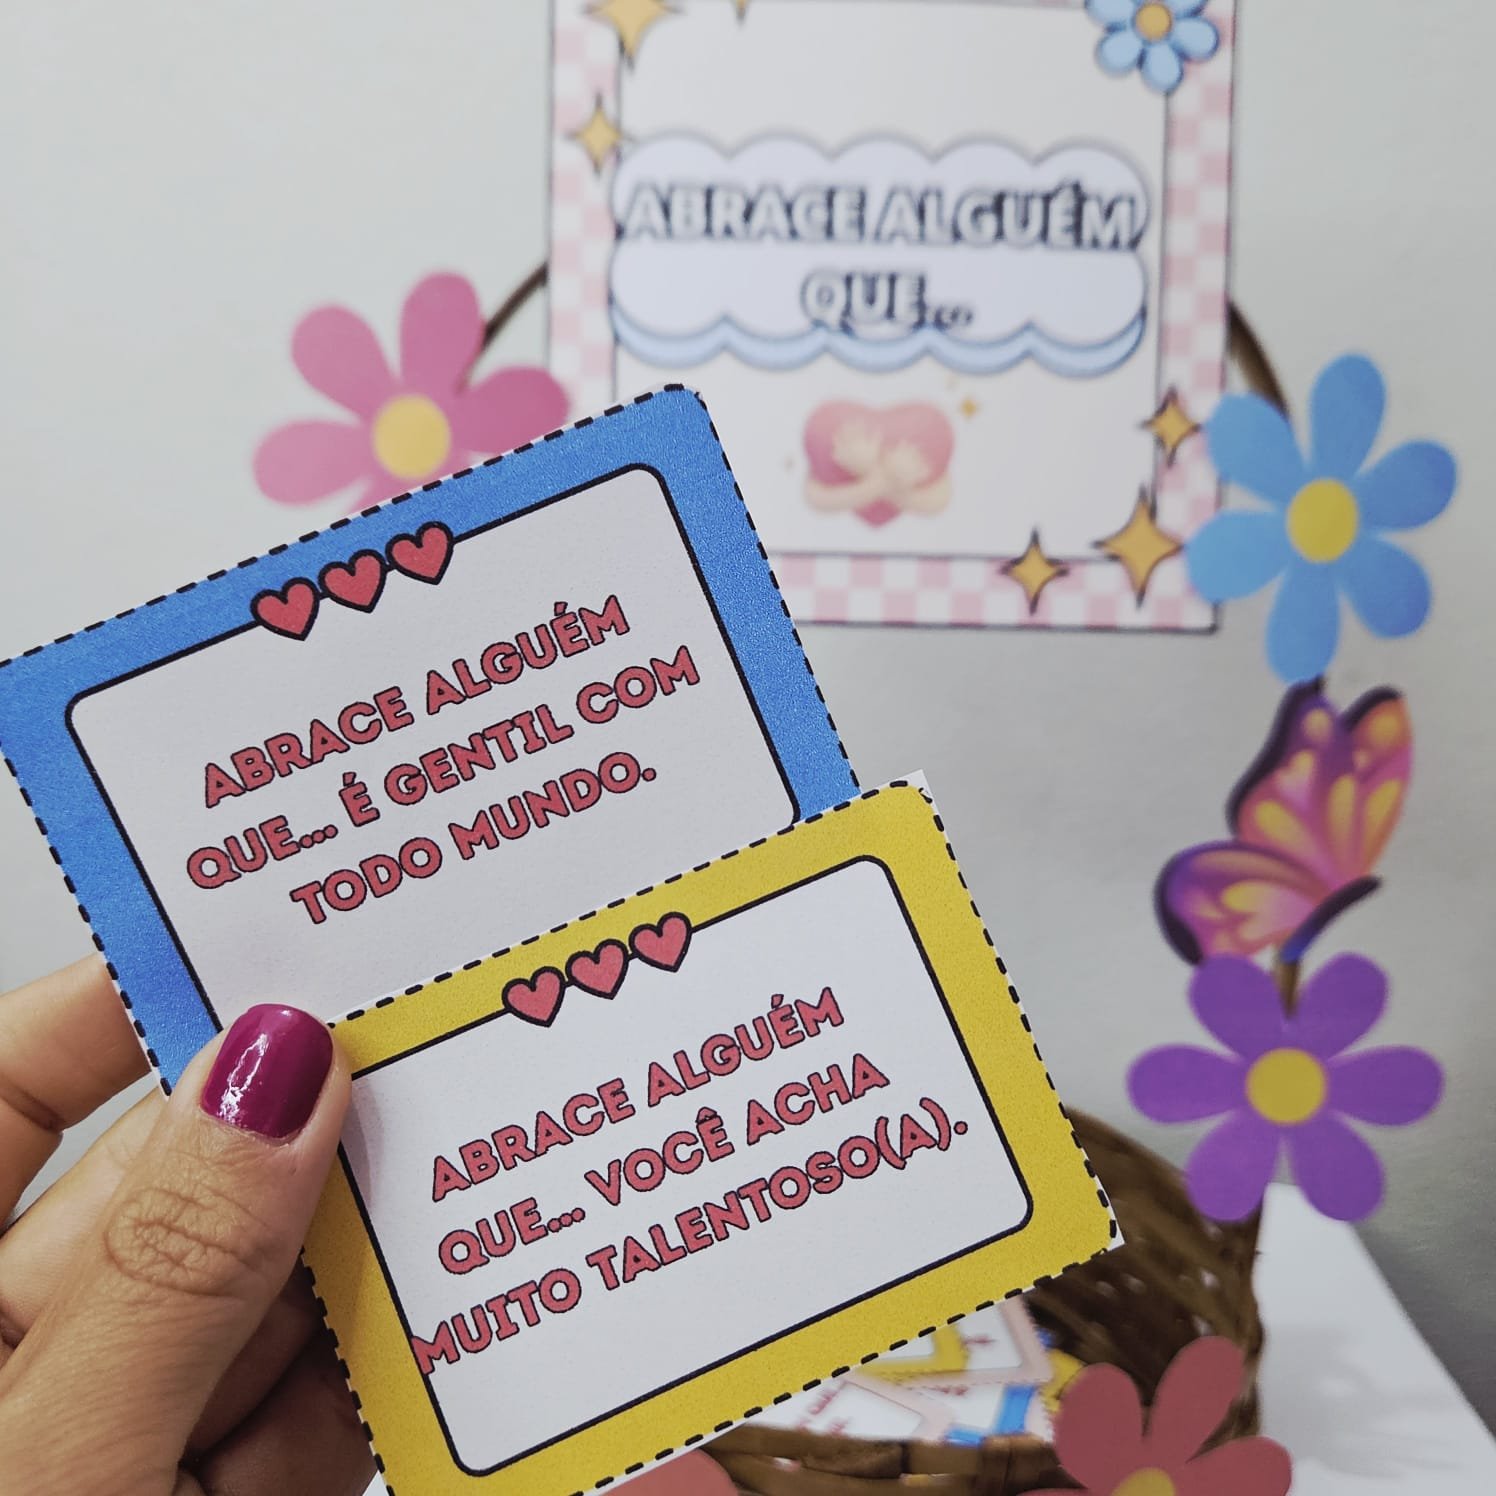 ABRACE ALGUÉM
QUE...
ABRACE ALGUÉM
QUE... É GENTIL COM
TODO MUNDO.
ABRACE ALGUÉM
QUE... VOCÊ ACHA
MUITO TALENTOSO(A).